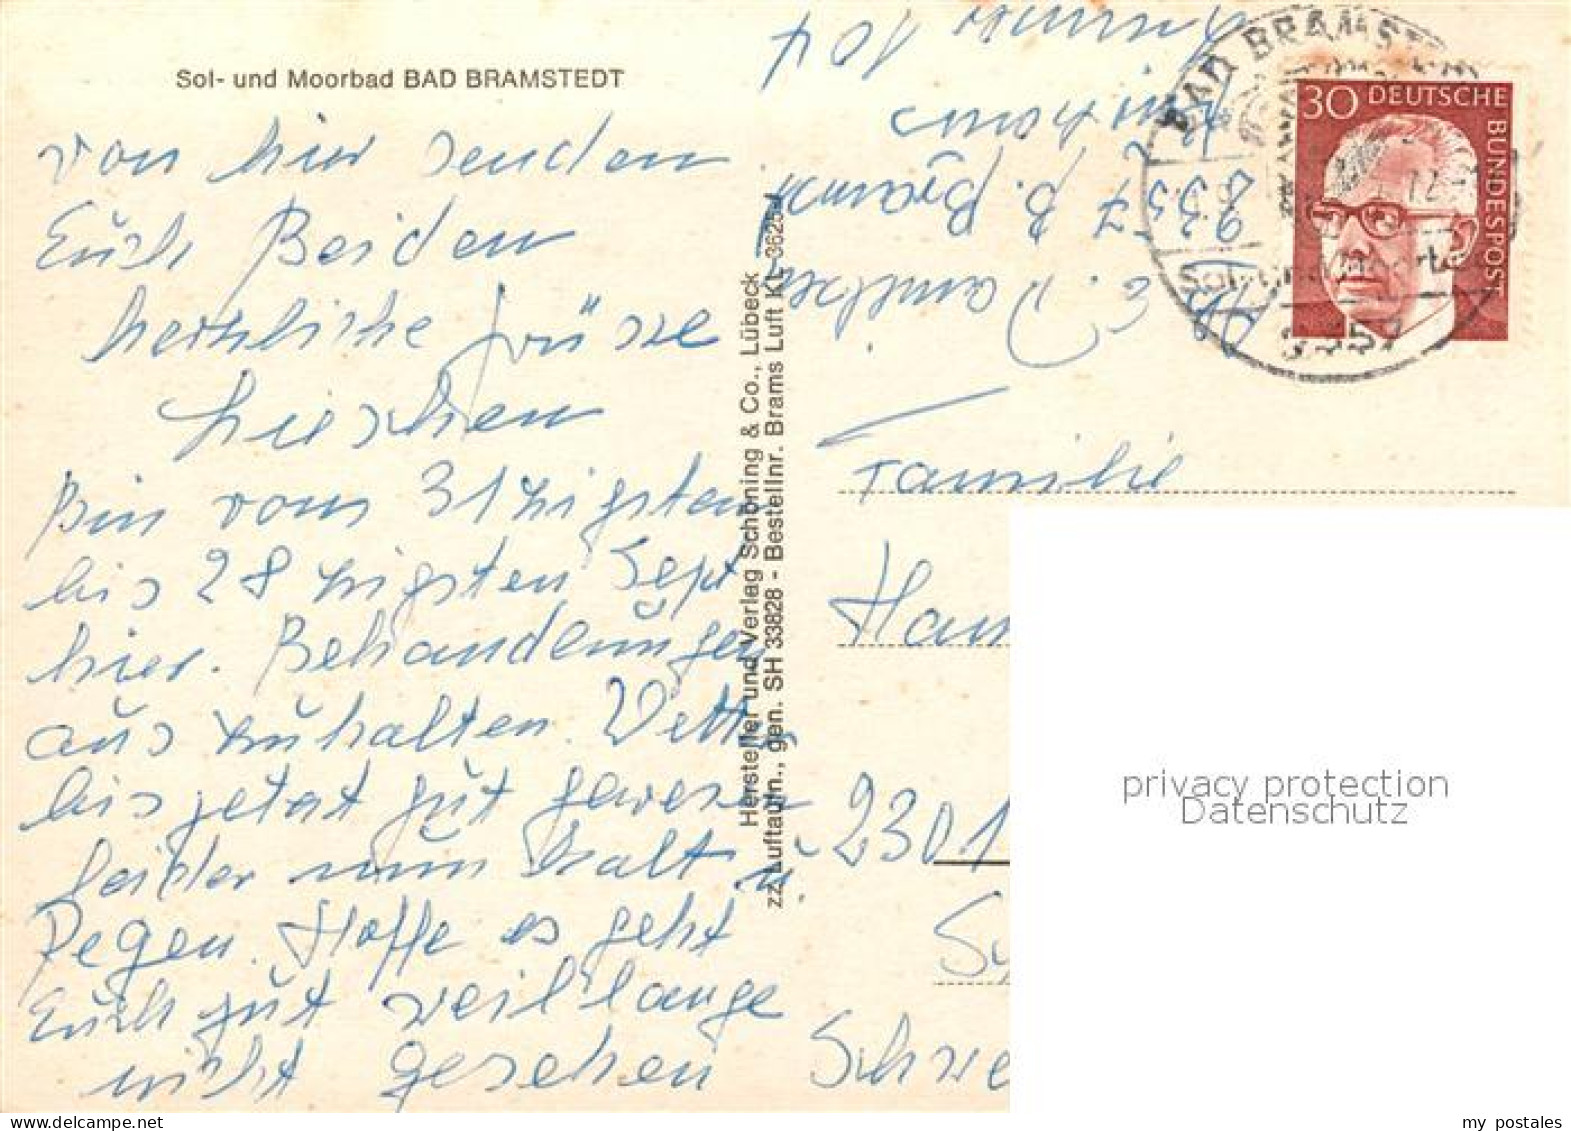 Sol- und Moorbad BAD BRAMSTEDT
von hier senden
Euch Beiden
herzliche Grüsse
Lieschen
Bin vom 31zigsten
bis 28zigsten Sept
hier. Behandlungen
auszuhalten. Wetter
bis jetzt gut gewesen
leider nun kalt u.
Regen. Hoffe es geht
Euch gut weil lange
nicht gesehen
Hersteller und Verlag Schöning & Co., Lübeck
zz Luftaufn., gen. SH 33828 - Bestellnr. Brams Luft KL 3626
2357 B. Bramst
Kurhaus
Zimmer 104
BAD BRAMSTEDT
2357
30 DEUTSCHE
BUNDESPOST
Familie
Han
2301
Schwe
privacy protection
Datenschutz
www.delcampe.net
my_postales